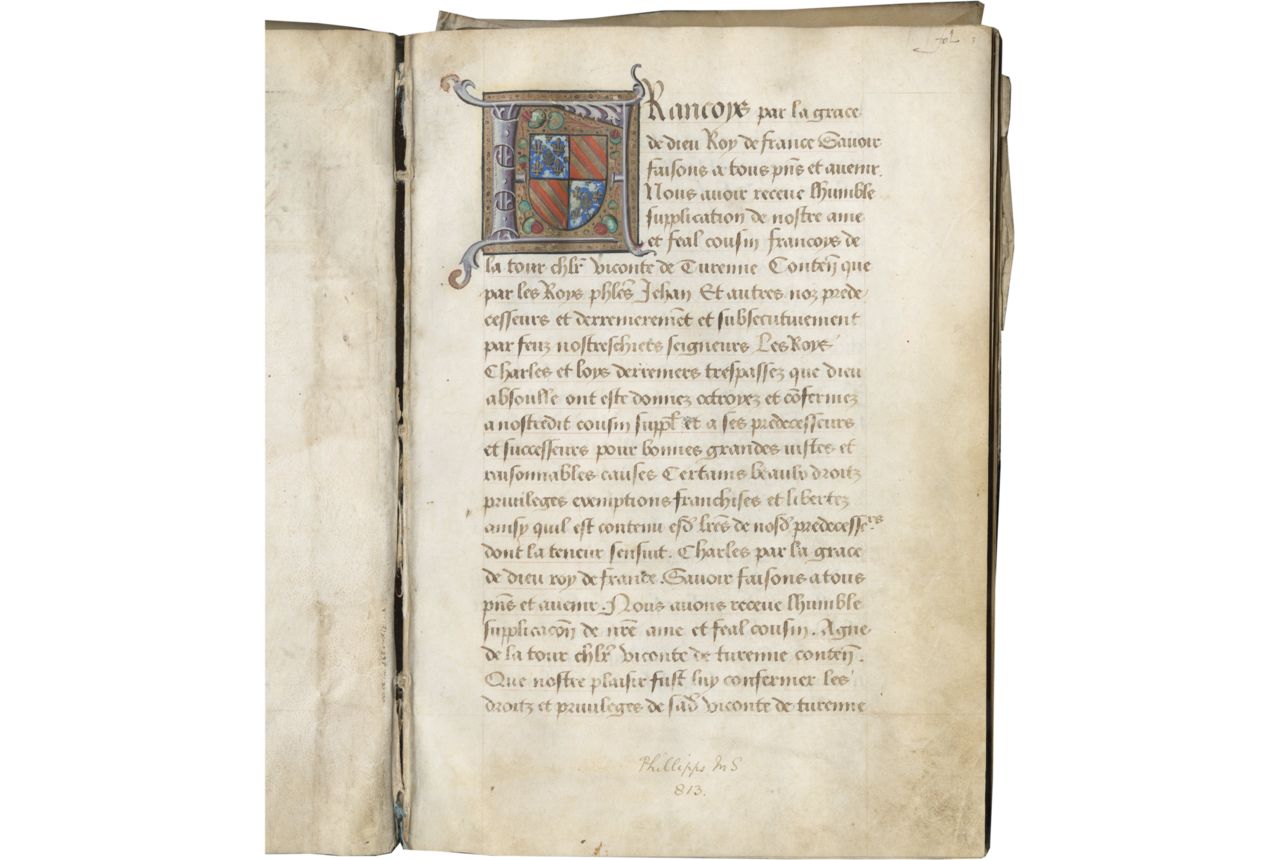 fol. 1
FRancoys par la grace
de dieu Roy de france Sauoir
faisons a tous pn̄s et auenir.
Nous auoir receue lhumble
supplication de nostre ame
et feal cousin francoys de
la tour chlr̄ viconte de Turenne Conten̄ que
par les Roys phles Jehan Et autres noz prede
cesseurs et derrenieremēt et subsecutiuement
par feuz nostreschiers seigneurs Les Roys
Charles et loys derreniers trespassez que dieu
absoulle ont este donnez octroyez et cōfermez
a nostredit cousin suppl̄ et a ses predecesseurs
et successeurs pour bonnes grandes iustes et
raisonnables causes Certains beaulx droitz
priuileges exemptions franchises et libertez
ainsy quil est contenu esd̄ lrēs de nosd̄ predecessers
dont la teneur sensuit. Charles par la grace
de dieu roy de france. Sauoir faisons a tous
pn̄s et auenir. Nous auons receue lhumble
supplicacōn de nrē ame et feal cousin. Agne
de la tour chlr̄ viconte de turenne conten̄.
Que nostre plaisir fust luy confermer les
droitz et priuileges de sad̄ viconte de turenne
Phillipps MS
813.